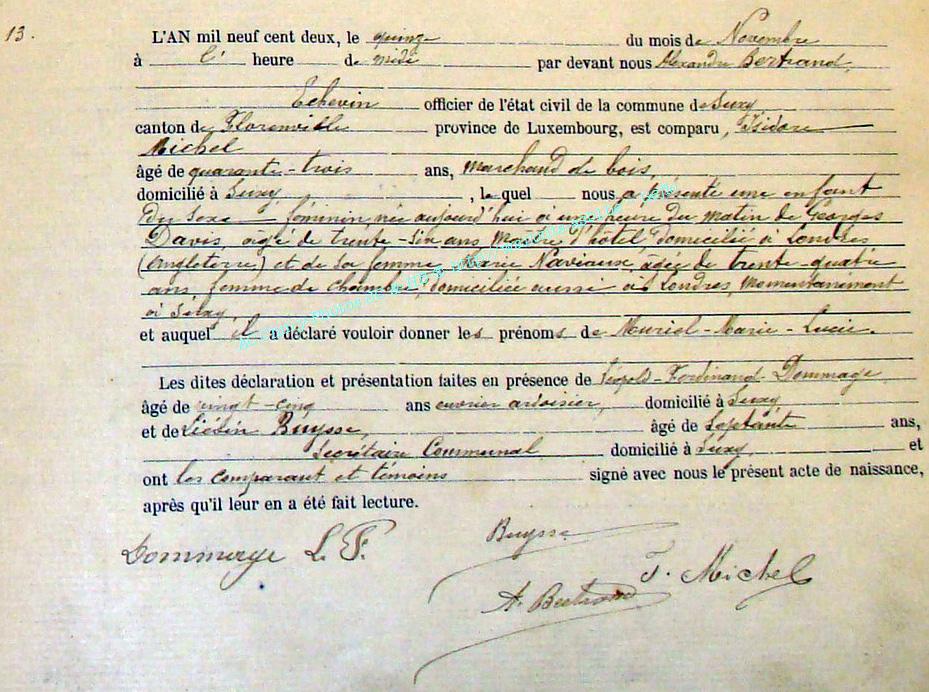 13.
L'AN mil neuf cent deux, le quinze du mois de Novembre
à l' heure de midi par devant nous Alexandre Bertrand,
Echevin officier de l'état civil de la commune de Suxy
canton de Florenville province de Luxembourg, est comparu, Isidore
Michel
âgé de quarante-trois ans, marchand de bois,
domicilié à Suxy, lequel nous a présenté une enfant
du sexe féminin née aujourd'hui à une heure du matin de Georges
Davis, âgé de trente-six ans, Maître d'hôtel, domicilié à Londres
(Angleterre) et de sa femme Marie Naviaux, âgée de trente-quatre
ans, femme de chambre, domiciliée aussi à Londres, momentanément
à Suxy,
et auquel il a déclaré vouloir donner les prénoms de Muriel-Marie-Lucie.
Les dites déclaration et présentation faites en présence de Léopold-Ferdinand Dommage
âgé de vingt-cinq ans ouvrier ardoisier, domicilié à Suxy
et de Liévin Buysse, âgé de septante ans,
Secrétaire Communal domicilié à Suxy, et
ont les comparant et témoins signé avec nous le présent acte de naissance,
après qu'il leur en a été fait lecture.
Dommage L. F.
Buysse
J. Michel
A. Bertrand